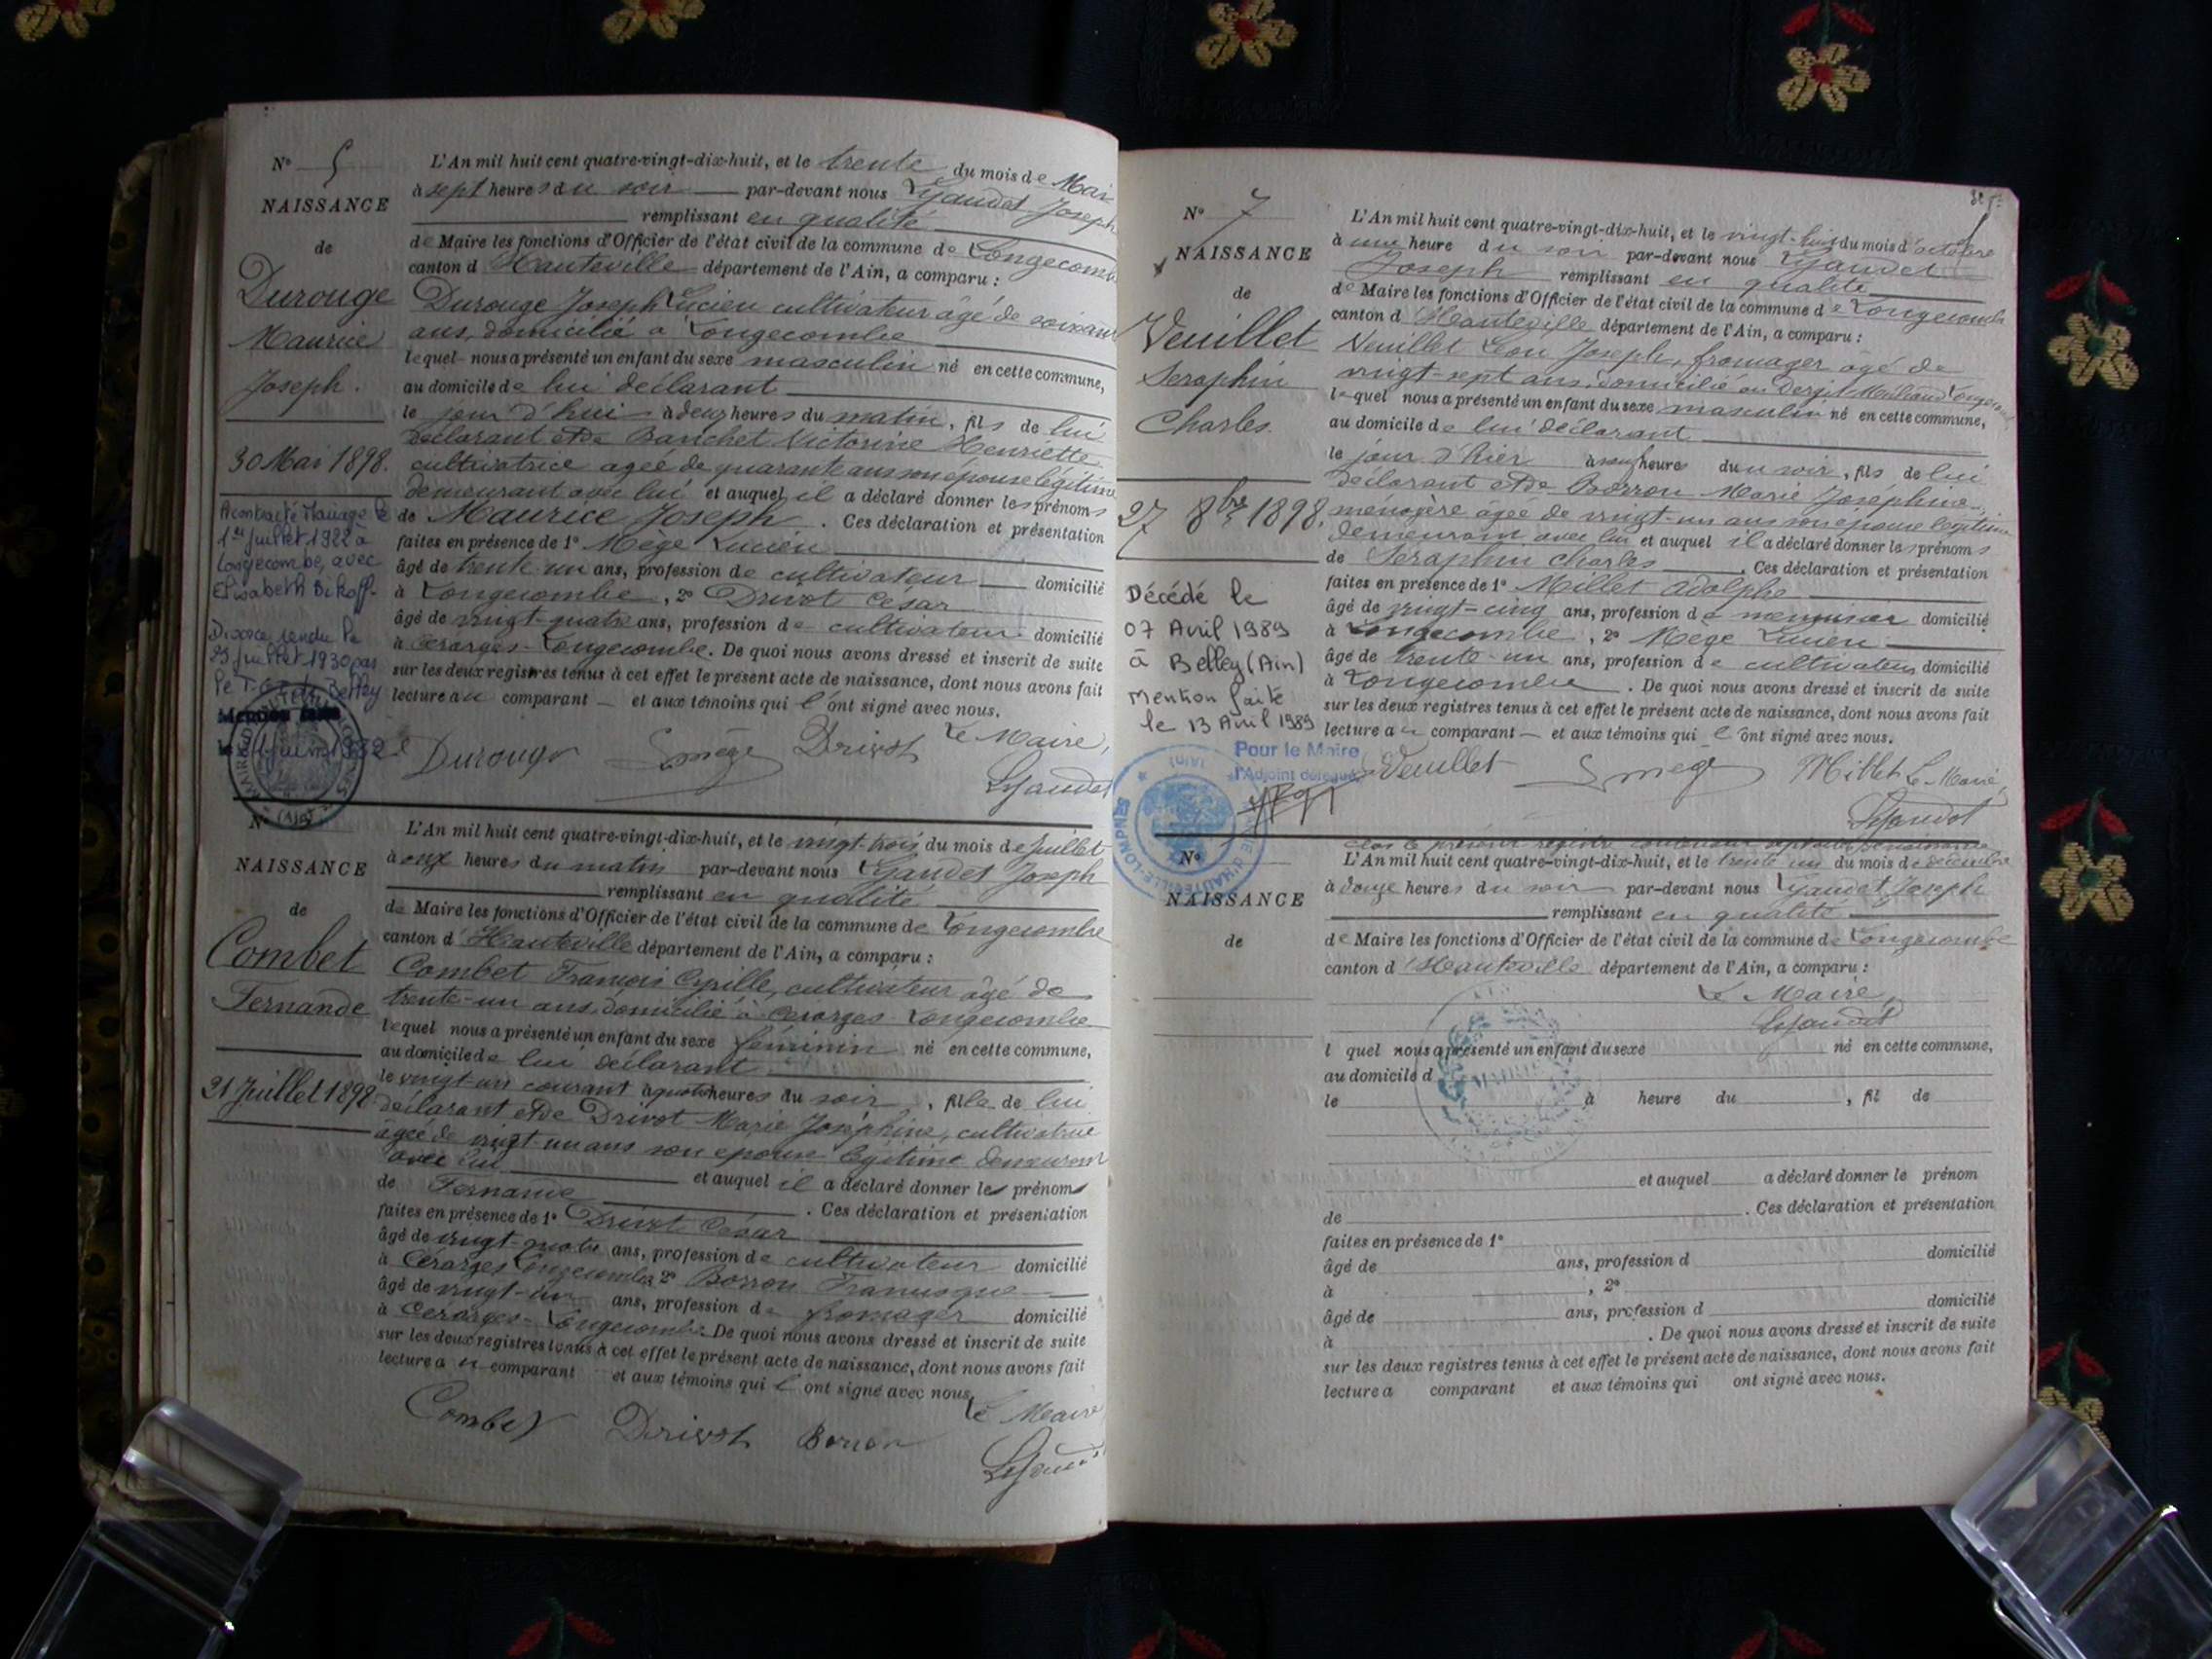 N° 5
NAISSANCE
de
Durouge
Maurice
Joseph.
30 Mai 1898.
A contracté Mariage le
1er juillet 1922 à
Longecombe, avec
Elisabeth Bikoff.
Divorce rendu le
25 juillet 1930 par
le T. G. I. de Belley
Mention faite
L'An mil huit cent quatre-vingt-dix-huit, et le trente du mois de Mai
à sept heures du soir par-devant nous Lyaudet Joseph
remplissant en qualité
de Maire les fonctions d'Officier de l'état civil de la commune de Longecombe
canton d'Hauteville département de l'Ain, a comparu :
Durouge Joseph Lucien cultivateur âgé de soixante
ans, domicilié à Longecombe
lequel nous a présenté un enfant du sexe masculin né en cette commune,
au domicile de lui déclarant
le jour d'hui à deux heures du matin, fils de lui
déclarant et de Banchet Victorine Henriette
cultivatrice agée de quarante ans son épouse légitime
demeurant avec lui et auquel il a déclaré donner les prénoms
de Maurice Joseph. Ces déclaration et présentation
faites en présence de 1° Mège Lucien
âgé de trente-un ans, profession de cultivateur domicilié
à Longecombe, 2° Drivot César
âgé de vingt-quatre ans, profession de cultivateur domicilié
à Cerarges-Longecombe. De quoi nous avons dressé et inscrit de suite
sur les deux registres tenus à cet effet le présent acte de naissance, dont nous avons fait
lecture au comparant et aux témoins qui l'ont signé avec nous.
Durouge Lmège Drivot Le Maire,
Lyaudet
N°
NAISSANCE
de
Combet
Fernande
21 Juillet 1898
L'An mil huit cent quatre-vingt-dix-huit, et le vingt-trois du mois de Juillet
à onze heures du matin par-devant nous Lyaudet Joseph
remplissant en qualité
de Maire les fonctions d'Officier de l'état civil de la commune de Longecombe
canton d'Hauteville département de l'Ain, a comparu :
Combet François Cyrille, cultivateur âgé de
trente-un ans, domicilié à Cerarges Longecombe
lequel nous a présenté un enfant du sexe féminin né en cette commune,
au domicile de lui déclarant
le vingt-un courant à quatre heures du soir, fille de lui
déclarant et de Drivot Marie Joséphine, cultivatrice
âgée de vingt-un ans son épouse légitime demeurant
avec lui et auquel il a déclaré donner les prénoms
de Fernande. Ces déclaration et présentation
faites en présence de 1° Drivot César
âgé de vingt-quatre ans, profession de cultivateur domicilié
à Cérarges Longecombe, 2° Borron Francisque
âgé de vingt-un ans, profession de fromager domicilié
à Cerarges-Longecombe. De quoi nous avons dressé et inscrit de suite
sur les deux registres tenus à cet effet le présent acte de naissance, dont nous avons fait
lecture au comparant et aux témoins qui l'ont signé avec nous,
Combet Drivot Borron Le Maire
Lyaudet
N° 7
NAISSANCE
de
Veuillet
Seraphin
Charles.
27 8bre 1898.
Décédé le
07 Avril 1989
à Belley (Ain)
Mention faite
le 13 Avril 1989
Pour le Maire
l'Adjoint délégué,
L'An mil huit cent quatre-vingt-dix-huit, et le vingt-huit du mois d'octobre
à une heure du soir par-devant nous Lyaudet
Joseph remplissant en qualité
de Maire les fonctions d'Officier de l'état civil de la commune de Longecombe
canton d'Hauteville département de l'Ain, a comparu :
Veuillet Léon Joseph, fromager âgé de
vingt-sept ans, domicilié au
lequel nous a présenté un enfant du sexe masculin né en cette commune,
au domicile de lui déclarant
le jour d'hier à neuf heures du soir, fils de lui
déclarant et de Borron Marie Joséphine,
ménagère agée de vingt-un ans son épouse légitime
demeurant avec lui et auquel il a déclaré donner les prénoms
de Seraphin Charles. Ces déclaration et présentation
faites en présence de 1° Millet Adolphe
âgé de vingt-cinq ans, profession de menuisier domicilié
à Longecombe, 2° Mège Lucien
âgé de trente-un ans, profession de cultivateur domicilié
à Longecombe. De quoi nous avons dressé et inscrit de suite
sur les deux registres tenus à cet effet le présent acte de naissance, dont nous avons fait
lecture au comparant et aux témoins qui l'ont signé avec nous.
Veuillet Lmège Millet Le Maire,
Lyaudet
MAIRIE D'HAUTEVILLE-LOMPNES
N°
NAISSANCE
de
clos le présent registre contenant sept actes de naissance
L'An mil huit cent quatre-vingt-dix-huit, et le trente un du mois de décembre
à douze heures du soir par-devant nous Lyaudet Joseph
remplissant en qualité
de Maire les fonctions d'Officier de l'état civil de la commune de Longecombe
canton d'Hauteville département de l'Ain, a comparu :
Le Maire,
Lyaudet
l quel nous a présenté un enfant du sexe né en cette commune,
au domicile d
le à heure du , fil de
et auquel a déclaré donner le prénom
de . Ces déclaration et présentation
faites en présence de 1°
âgé de ans, profession d domicilié
à , 2°
âgé de ans, profession d domicilié
à . De quoi nous avons dressé et inscrit de suite
sur les deux registres tenus à cet effet le présent acte de naissance, dont nous avons fait
lecture a comparant et aux témoins qui ont signé avec nous.